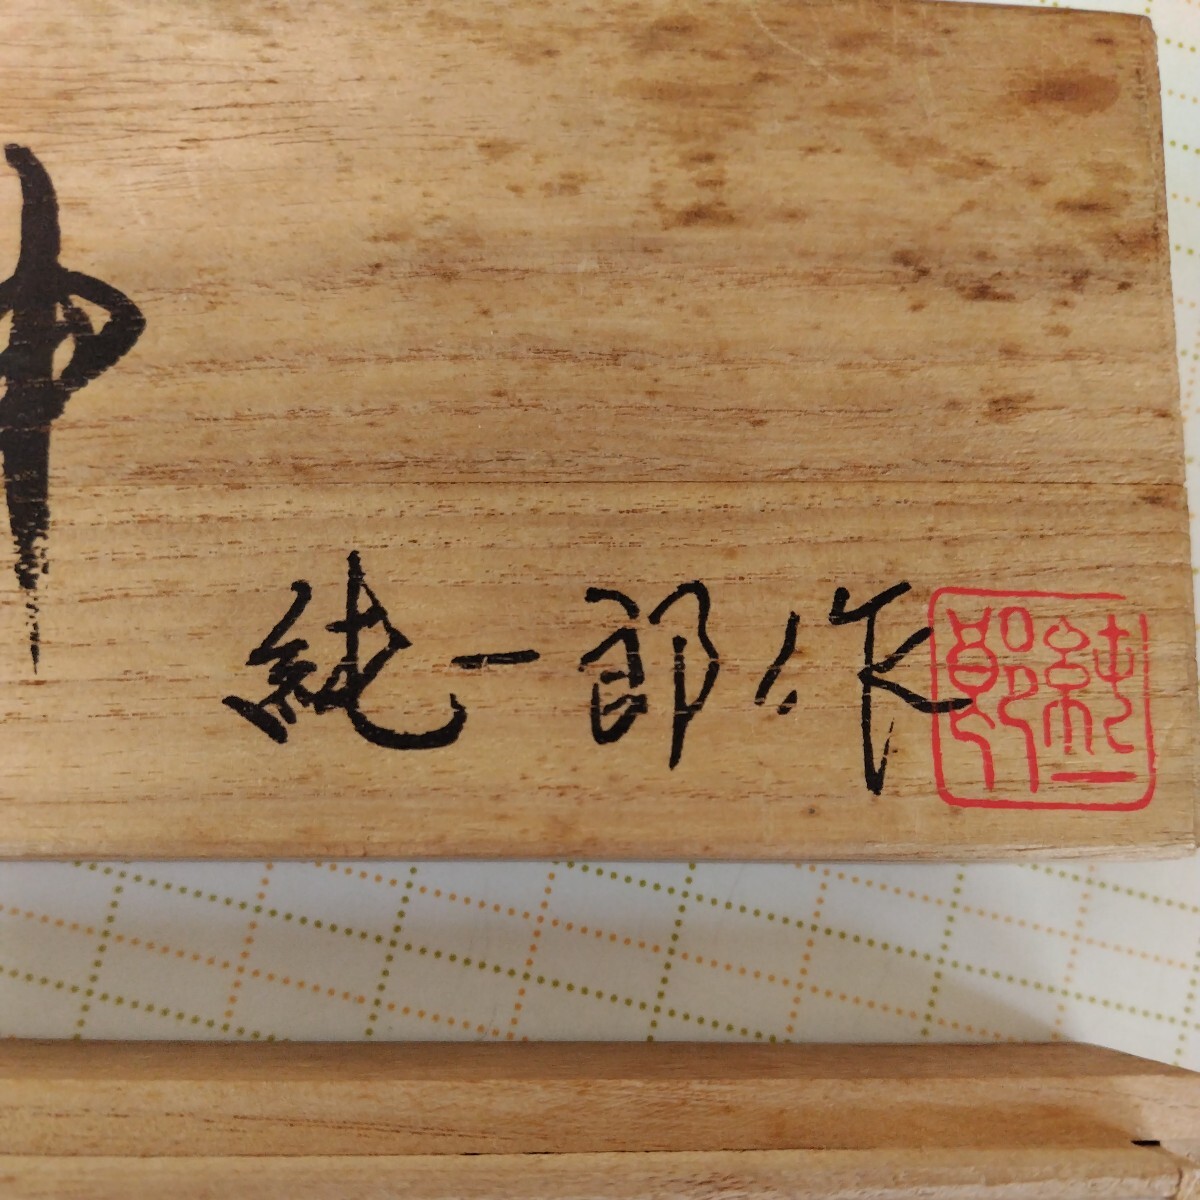 純一郎作
純一郎